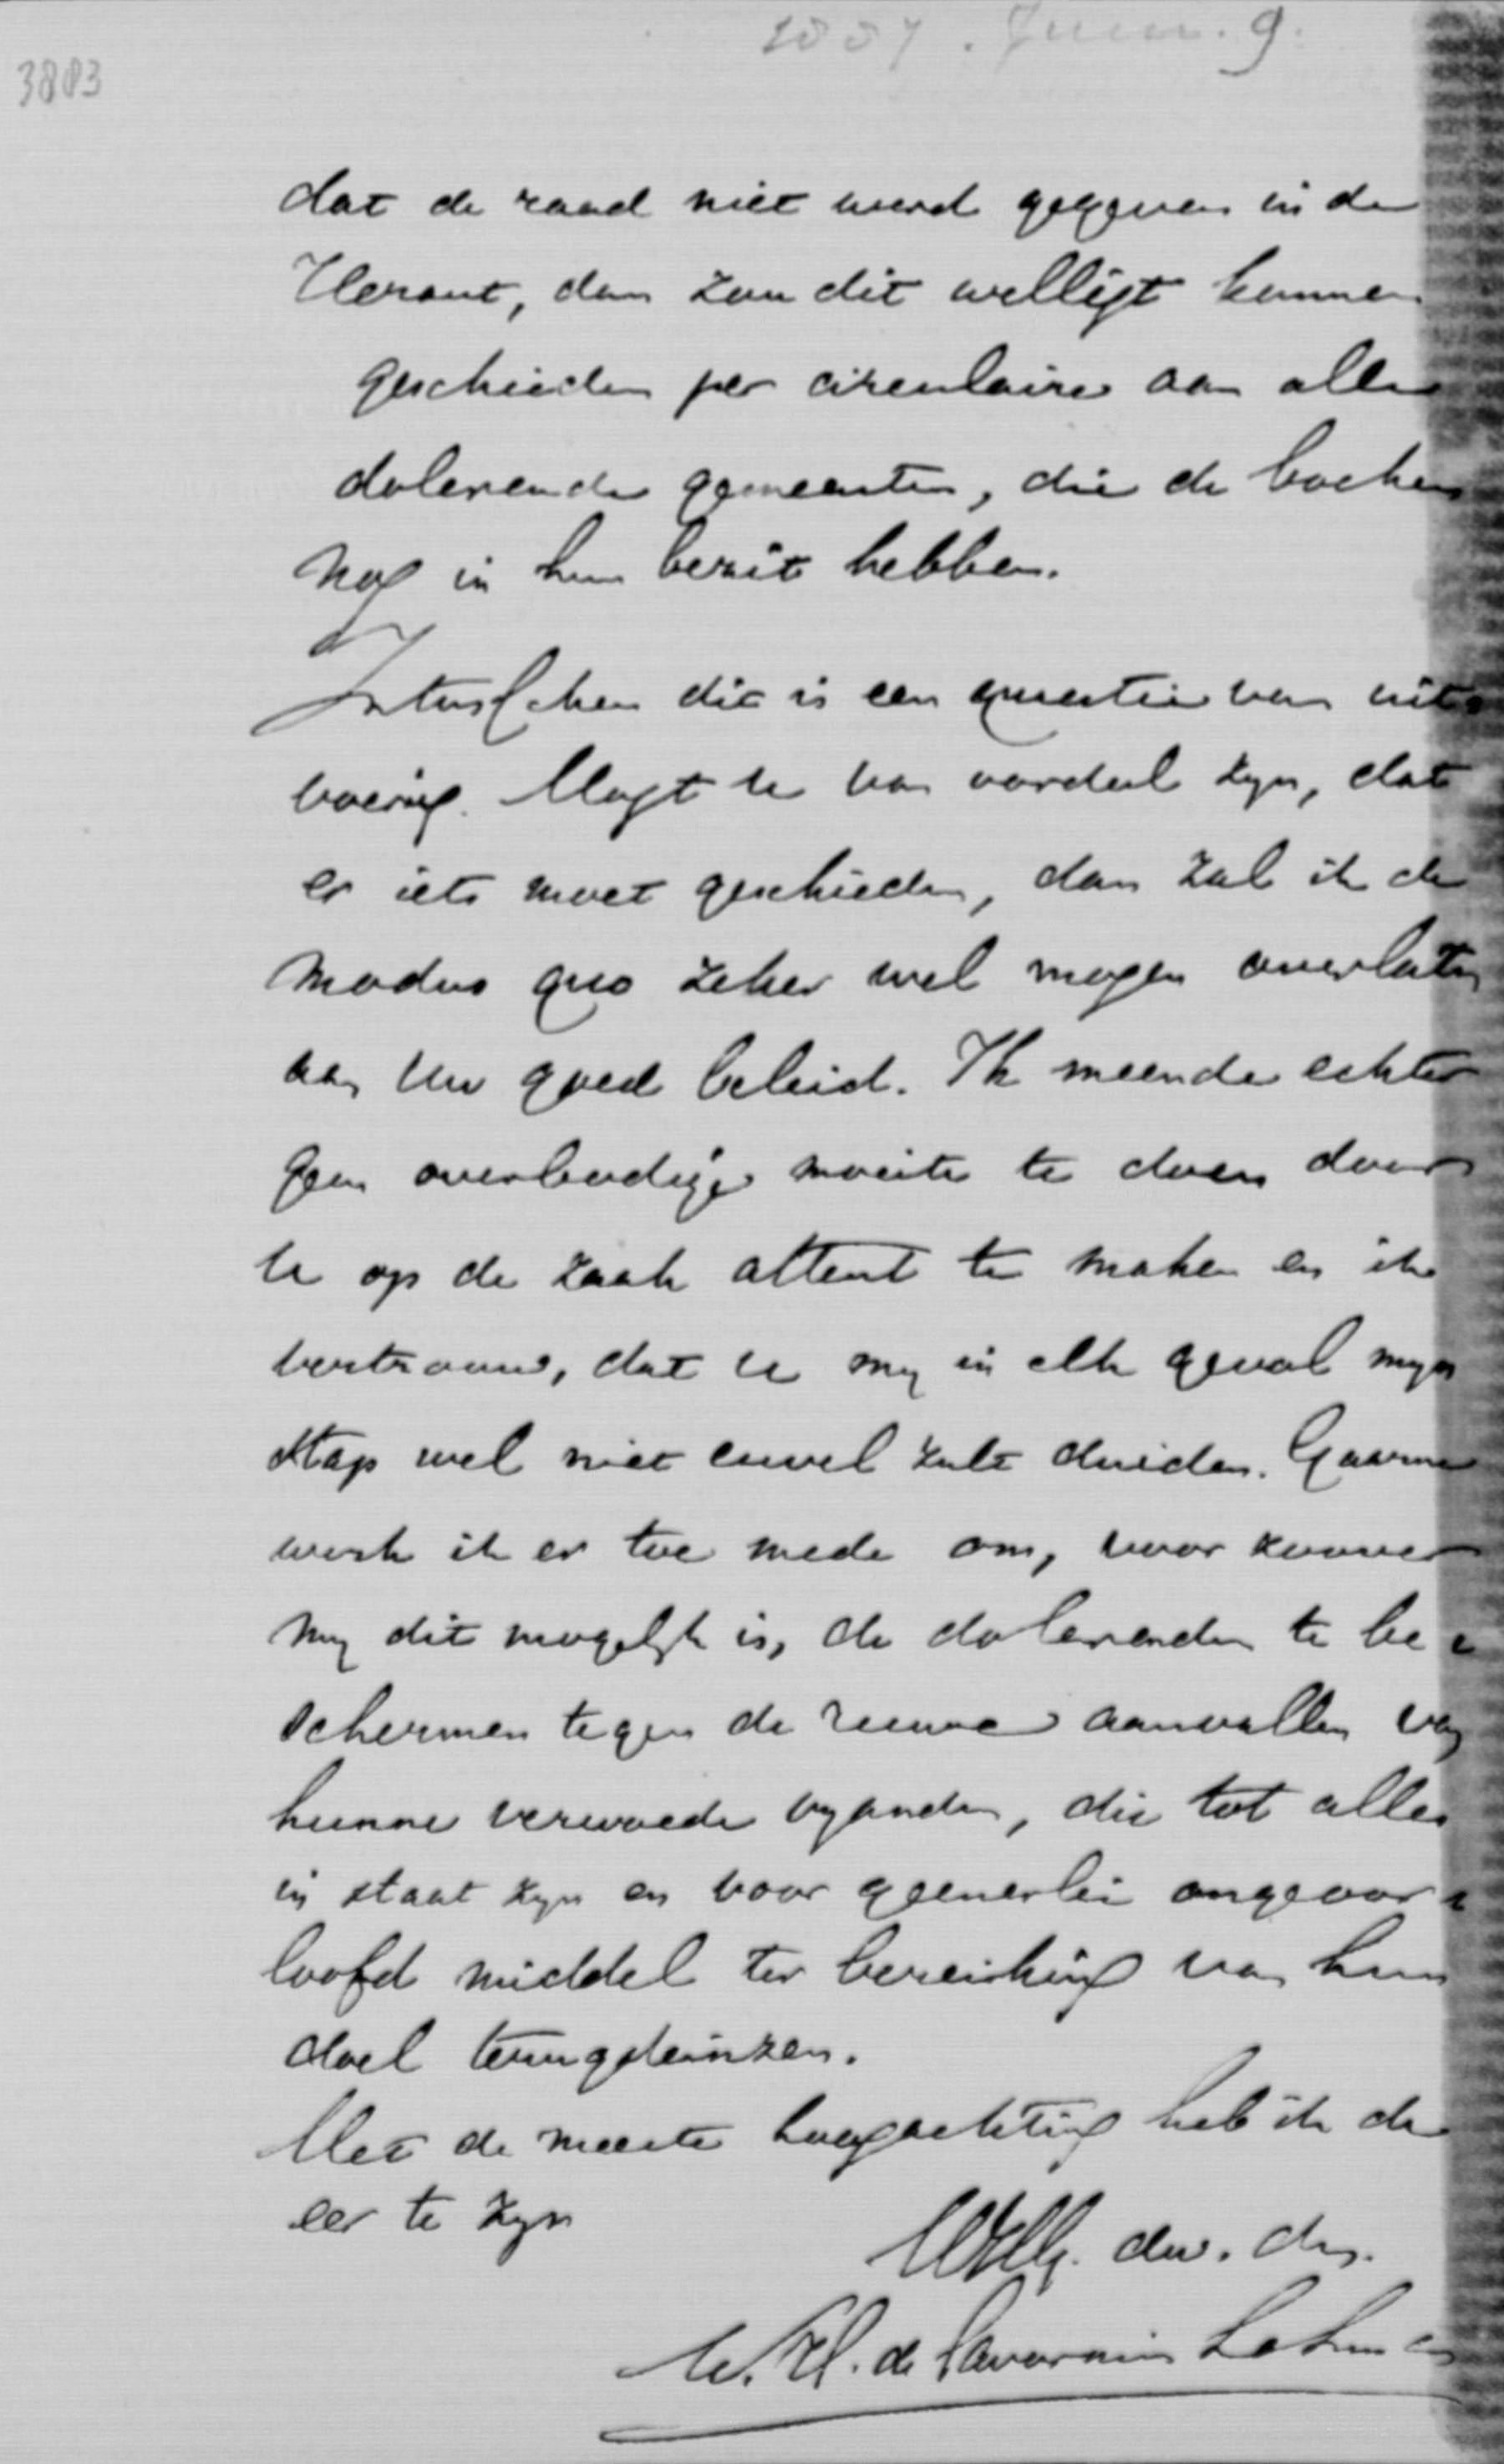 1887. Jan. 9.
3883
dat de raad niet werd gegeven in de
Heraut, dan zou dit welligt kunnen
geschieden per circulaire aan alle
dolerende gemeenten, die de boeken
nog in hun bezit hebben.
Intusschen dit is een quaestie van uit-
voering. Mogt U van oordeel zyn, dat
er iets moet geschieden, dan zal ik de
modus quo zeker wel mogen overlaten
aan Uw goed beleid. Ik meende echter
geen overbodige moeite te doen door
U op de zaak attent te maken en ik
vertrouw, dat U my in elk geval myn
stap wel niet euvel zult duiden. Gaarne
werk ik er toe mede om, voor zoover
my dit mogelyk is, de dolerenden te be-
schermen tegen de ruwe aanvallen van
hunne verwoede vyanden, die tot alles
in staat zyn en voor geenerlei ongeoor-
loofd middel ter bereiking van hun
doel terugdeinzen.
Met de meeste hoogachting heb ik de
eer te zyn
UWEG. dw. dr.
W. H. de Savornin Lohman